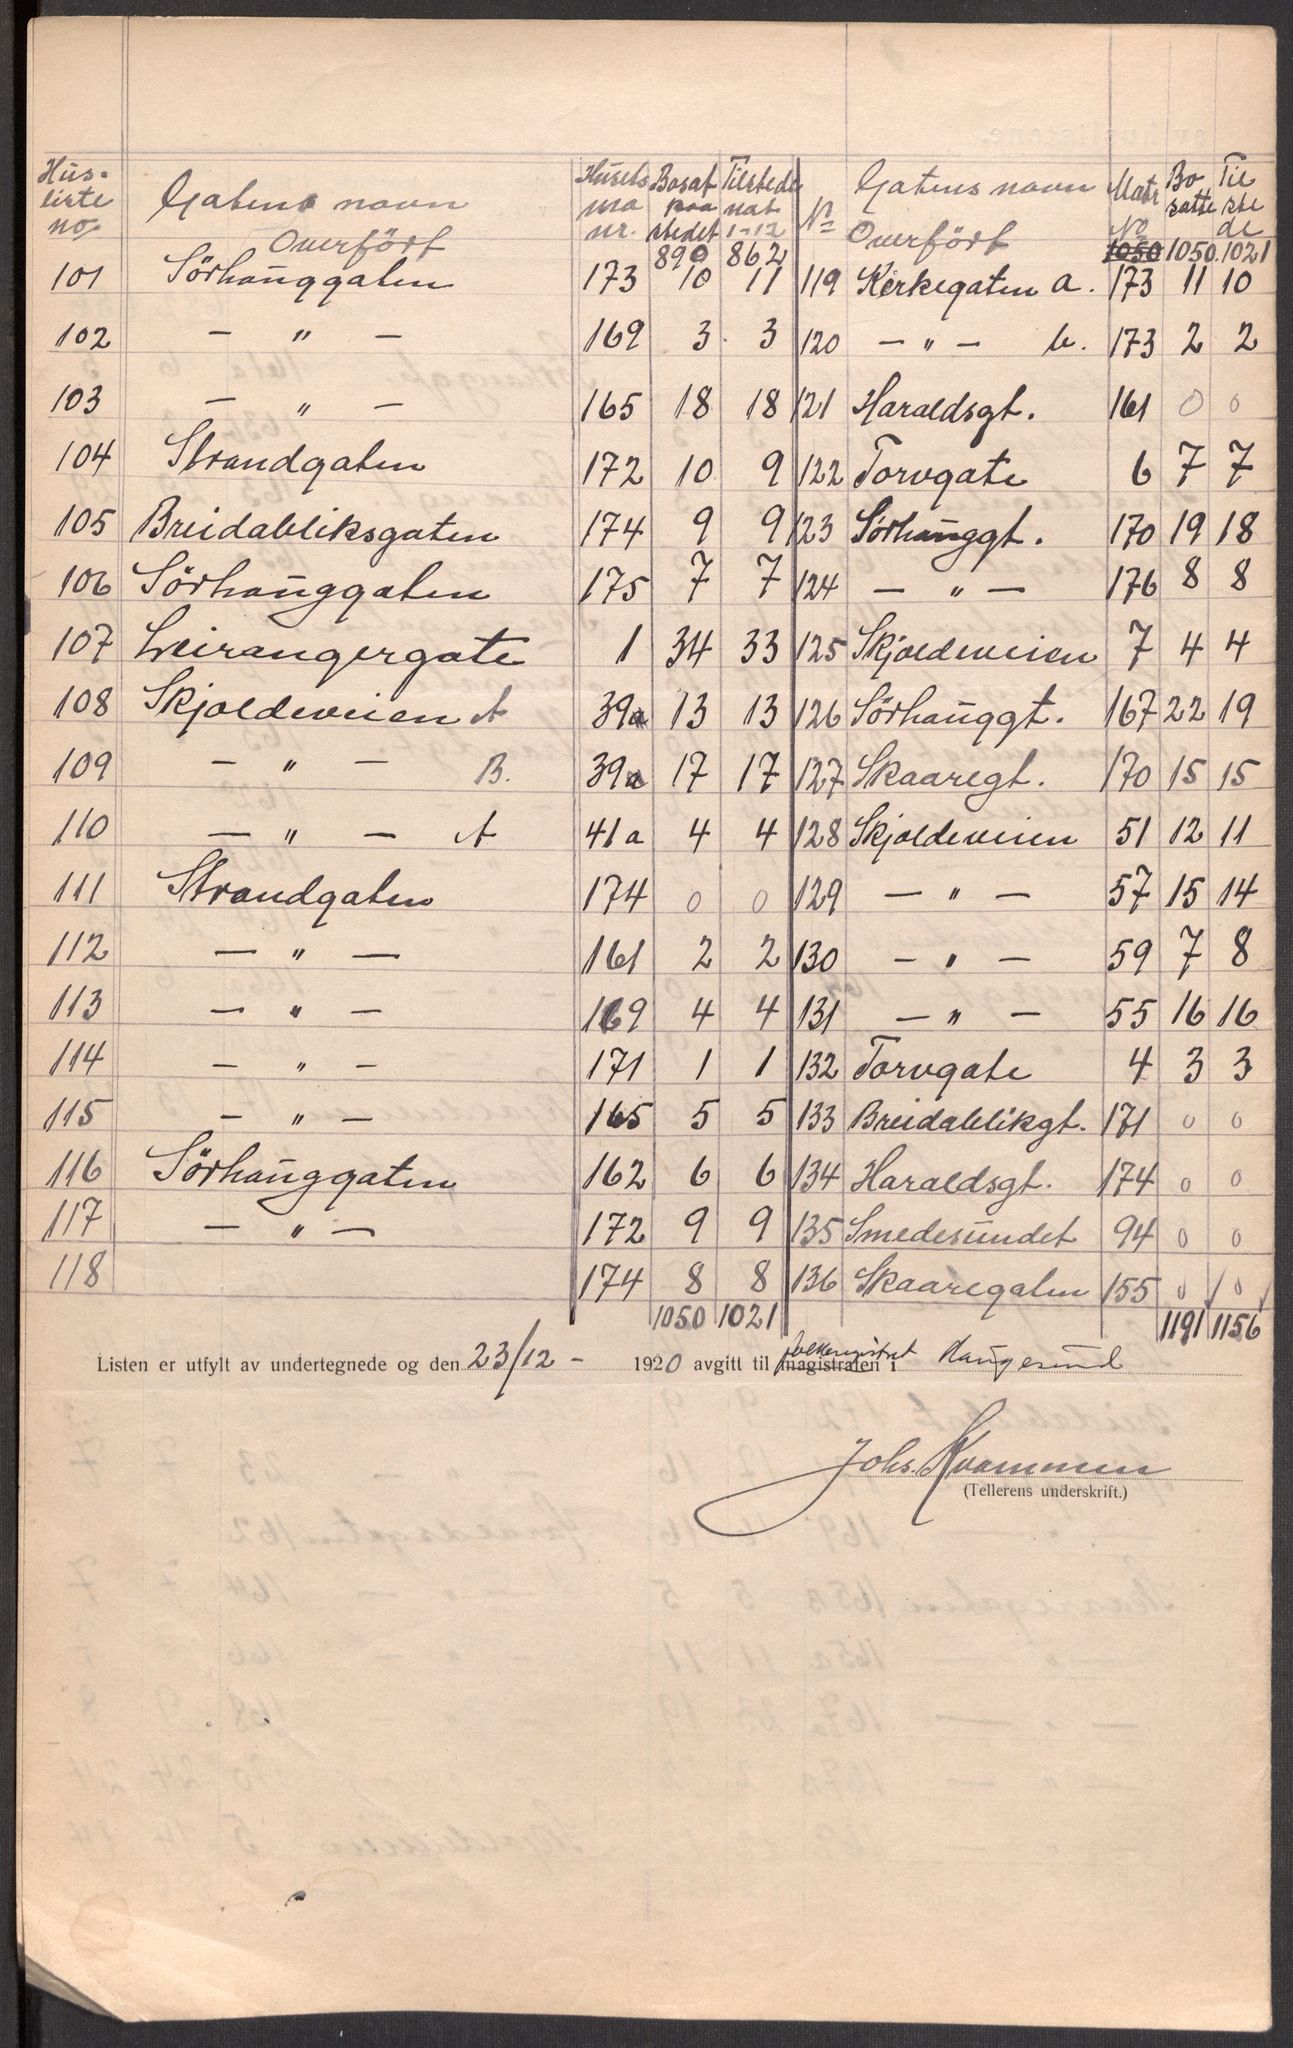 Hus- liste no. Gatens navn Husets ma nr. Bosat paa stedet Tilstede nat 1-12
Overført 890 862
101 Sörhauggaten 173 10 11
102 — " — 169 3 3
103 — " — 165 18 18
104 Strandgaten 172 10 9
105 Breidabliksgaten 174 9 9
106 Sörhauggaten 175 7 7
107 Leirangergate 1 34 33
108 Skjoldeveien A 39a 13 13
109 — " — B. 39a 17 17
110 — " — A 41a 4 4
111 Strandgaten 174 0 0
112 — " — 161 2 2
113 — " — 169 4 4
114 — " — 171 1 1
115 — " — 165 5 5
116 Sörhauggaten 162 6 6
117 — " — 172 9 9
118 174 8 8
1050 1021
No Gatens navn Matr No Bo satte Til ste de
Overført 1050 1050 1021
119 Kirkegaten a. 173 11 10
120 — " — b. 173 2 2
121 Haraldsgt. 161 0 0
122 Torvgate 6 7 7
123 Sörhauggt. 170 19 18
124 — " — 176 8 8
125 Skjoldeveien 7 4 4
126 Sörhauggt. 167 22 19
127 Skaaregt. 170 15 15
128 Skjoldeveien 51 12 11
129 — " — 57 15 14
130 — " — 59 7 8
131 — " — 55 16 16
132 Torvgate 4 3 3
133 Breidablikgt. 171 0 0
134 Haraldsgt. 174 0 0
135 Smedesundet 94 0 0
136 Skaaregaten 155 0 0
1191 1156
folkeregistret
Listen er utfylt av undertegnede og den 23/12 - 1920 avgitt til magistraten i Haugesund
Johs. Kvammen
(Tellerens underskrift.)